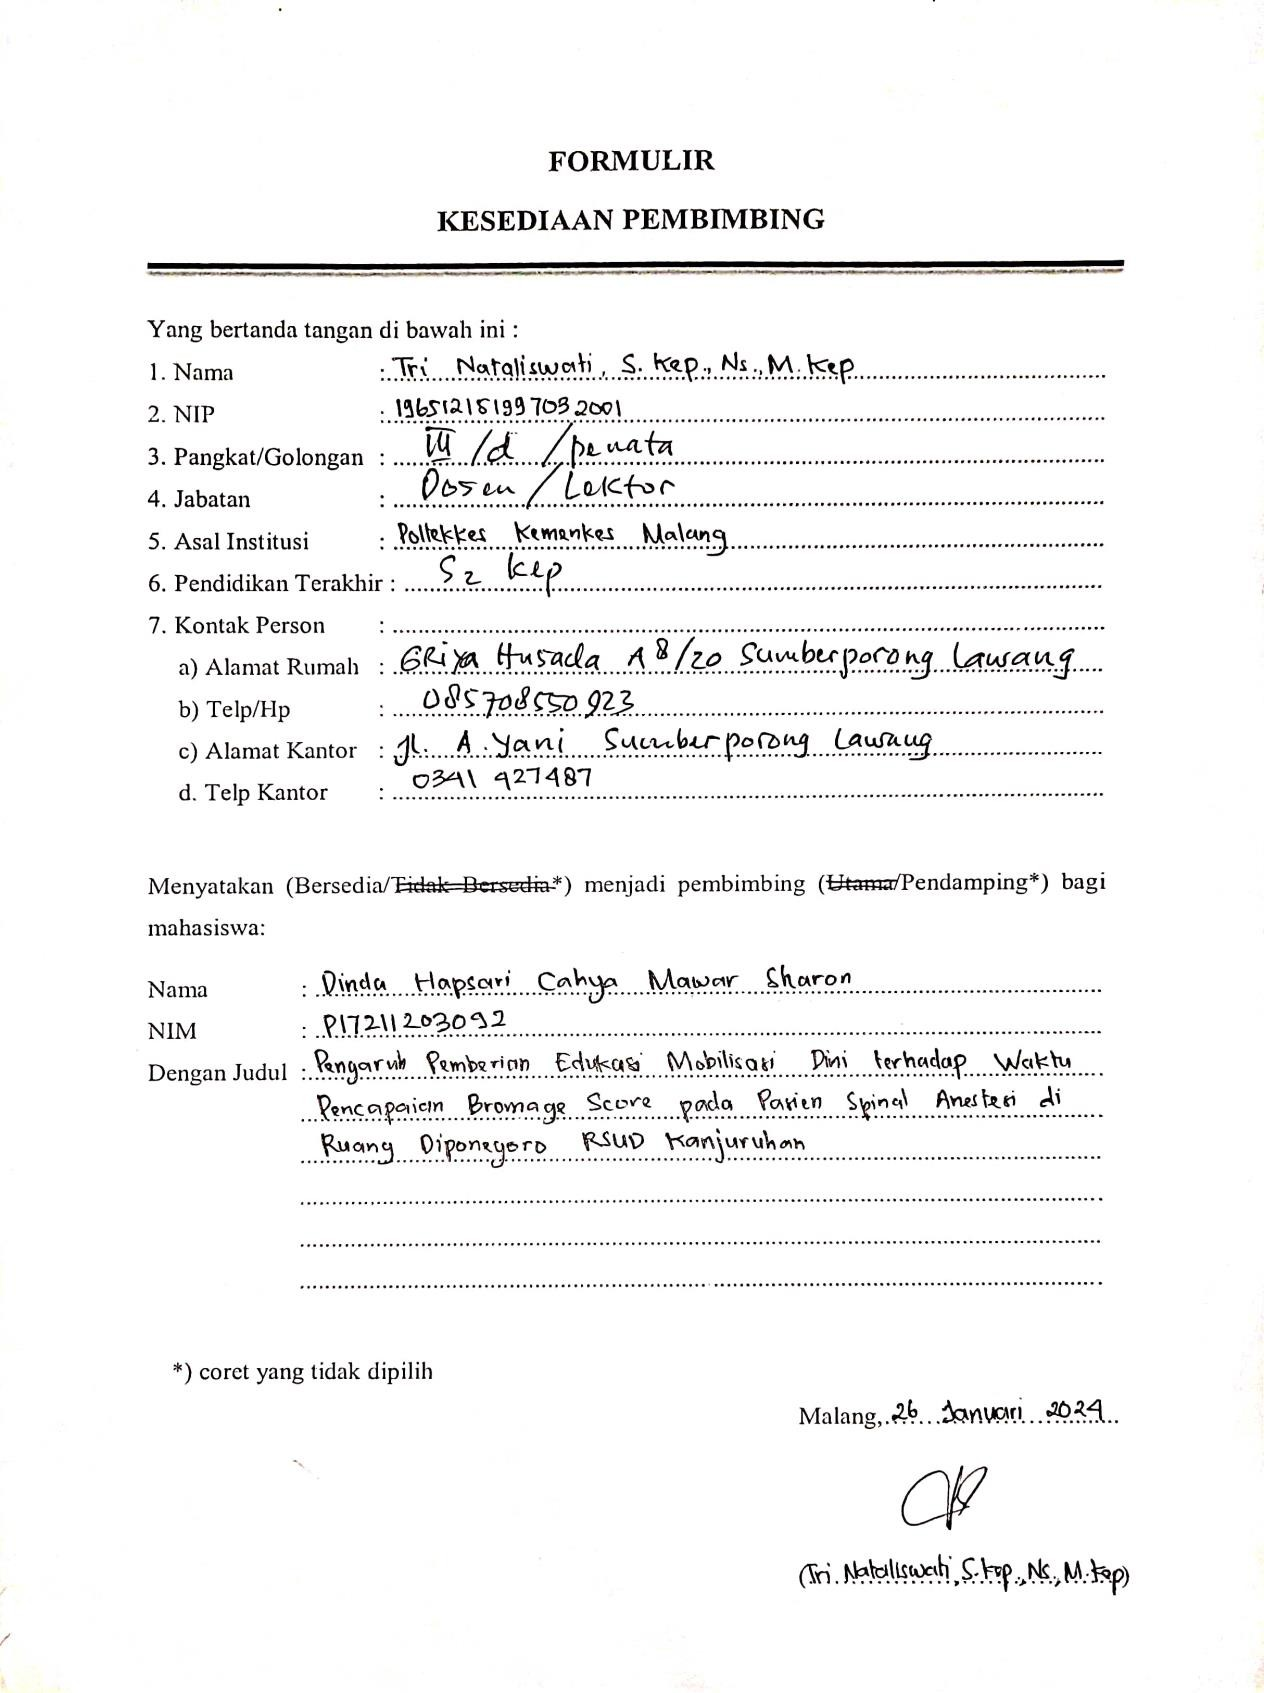 FORMULIR
KESEDIAAN PEMBIMBING
Yang bertanda tangan di bawah ini :
1. Nama : Tri Nataliswati, S. Kep., Ns., M. Kep
2. NIP : 196512151997032001
3. Pangkat/Golongan : III /d /penata
4. Jabatan : Dosen / Lektor
5. Asal Institusi : Poltekkes Kemenkes Malang
6. Pendidikan Terakhir : S2 Kep
7. Kontak Person :
a) Alamat Rumah : GRiya Husada A 8/20 Sumberporong Lawang
b) Telp/Hp : 085708550923
c) Alamat Kantor : Jl. A. Yani Sumberporong Lawang
d. Telp Kantor : 0341 427487
Menyatakan (Bersedia/Tidak Bersedia*) menjadi pembimbing (Utama/Pendamping*) bagi
mahasiswa:
Nama : Dinda Hapsari Cahya Mawar Sharon
NIM : P17211203092
Dengan Judul : Pengaruh Pemberian Edukasi Mobilisasi Dini terhadap Waktu
Pencapaian Bromage Score pada Pasien Spinal Anestesi di
Ruang Diponegoro RSUD Kanjuruhan
*) coret yang tidak dipilih
Malang, 26 Januari 2024
(Tri. Nataliswati, S.Kep., Ns., M.Kep)